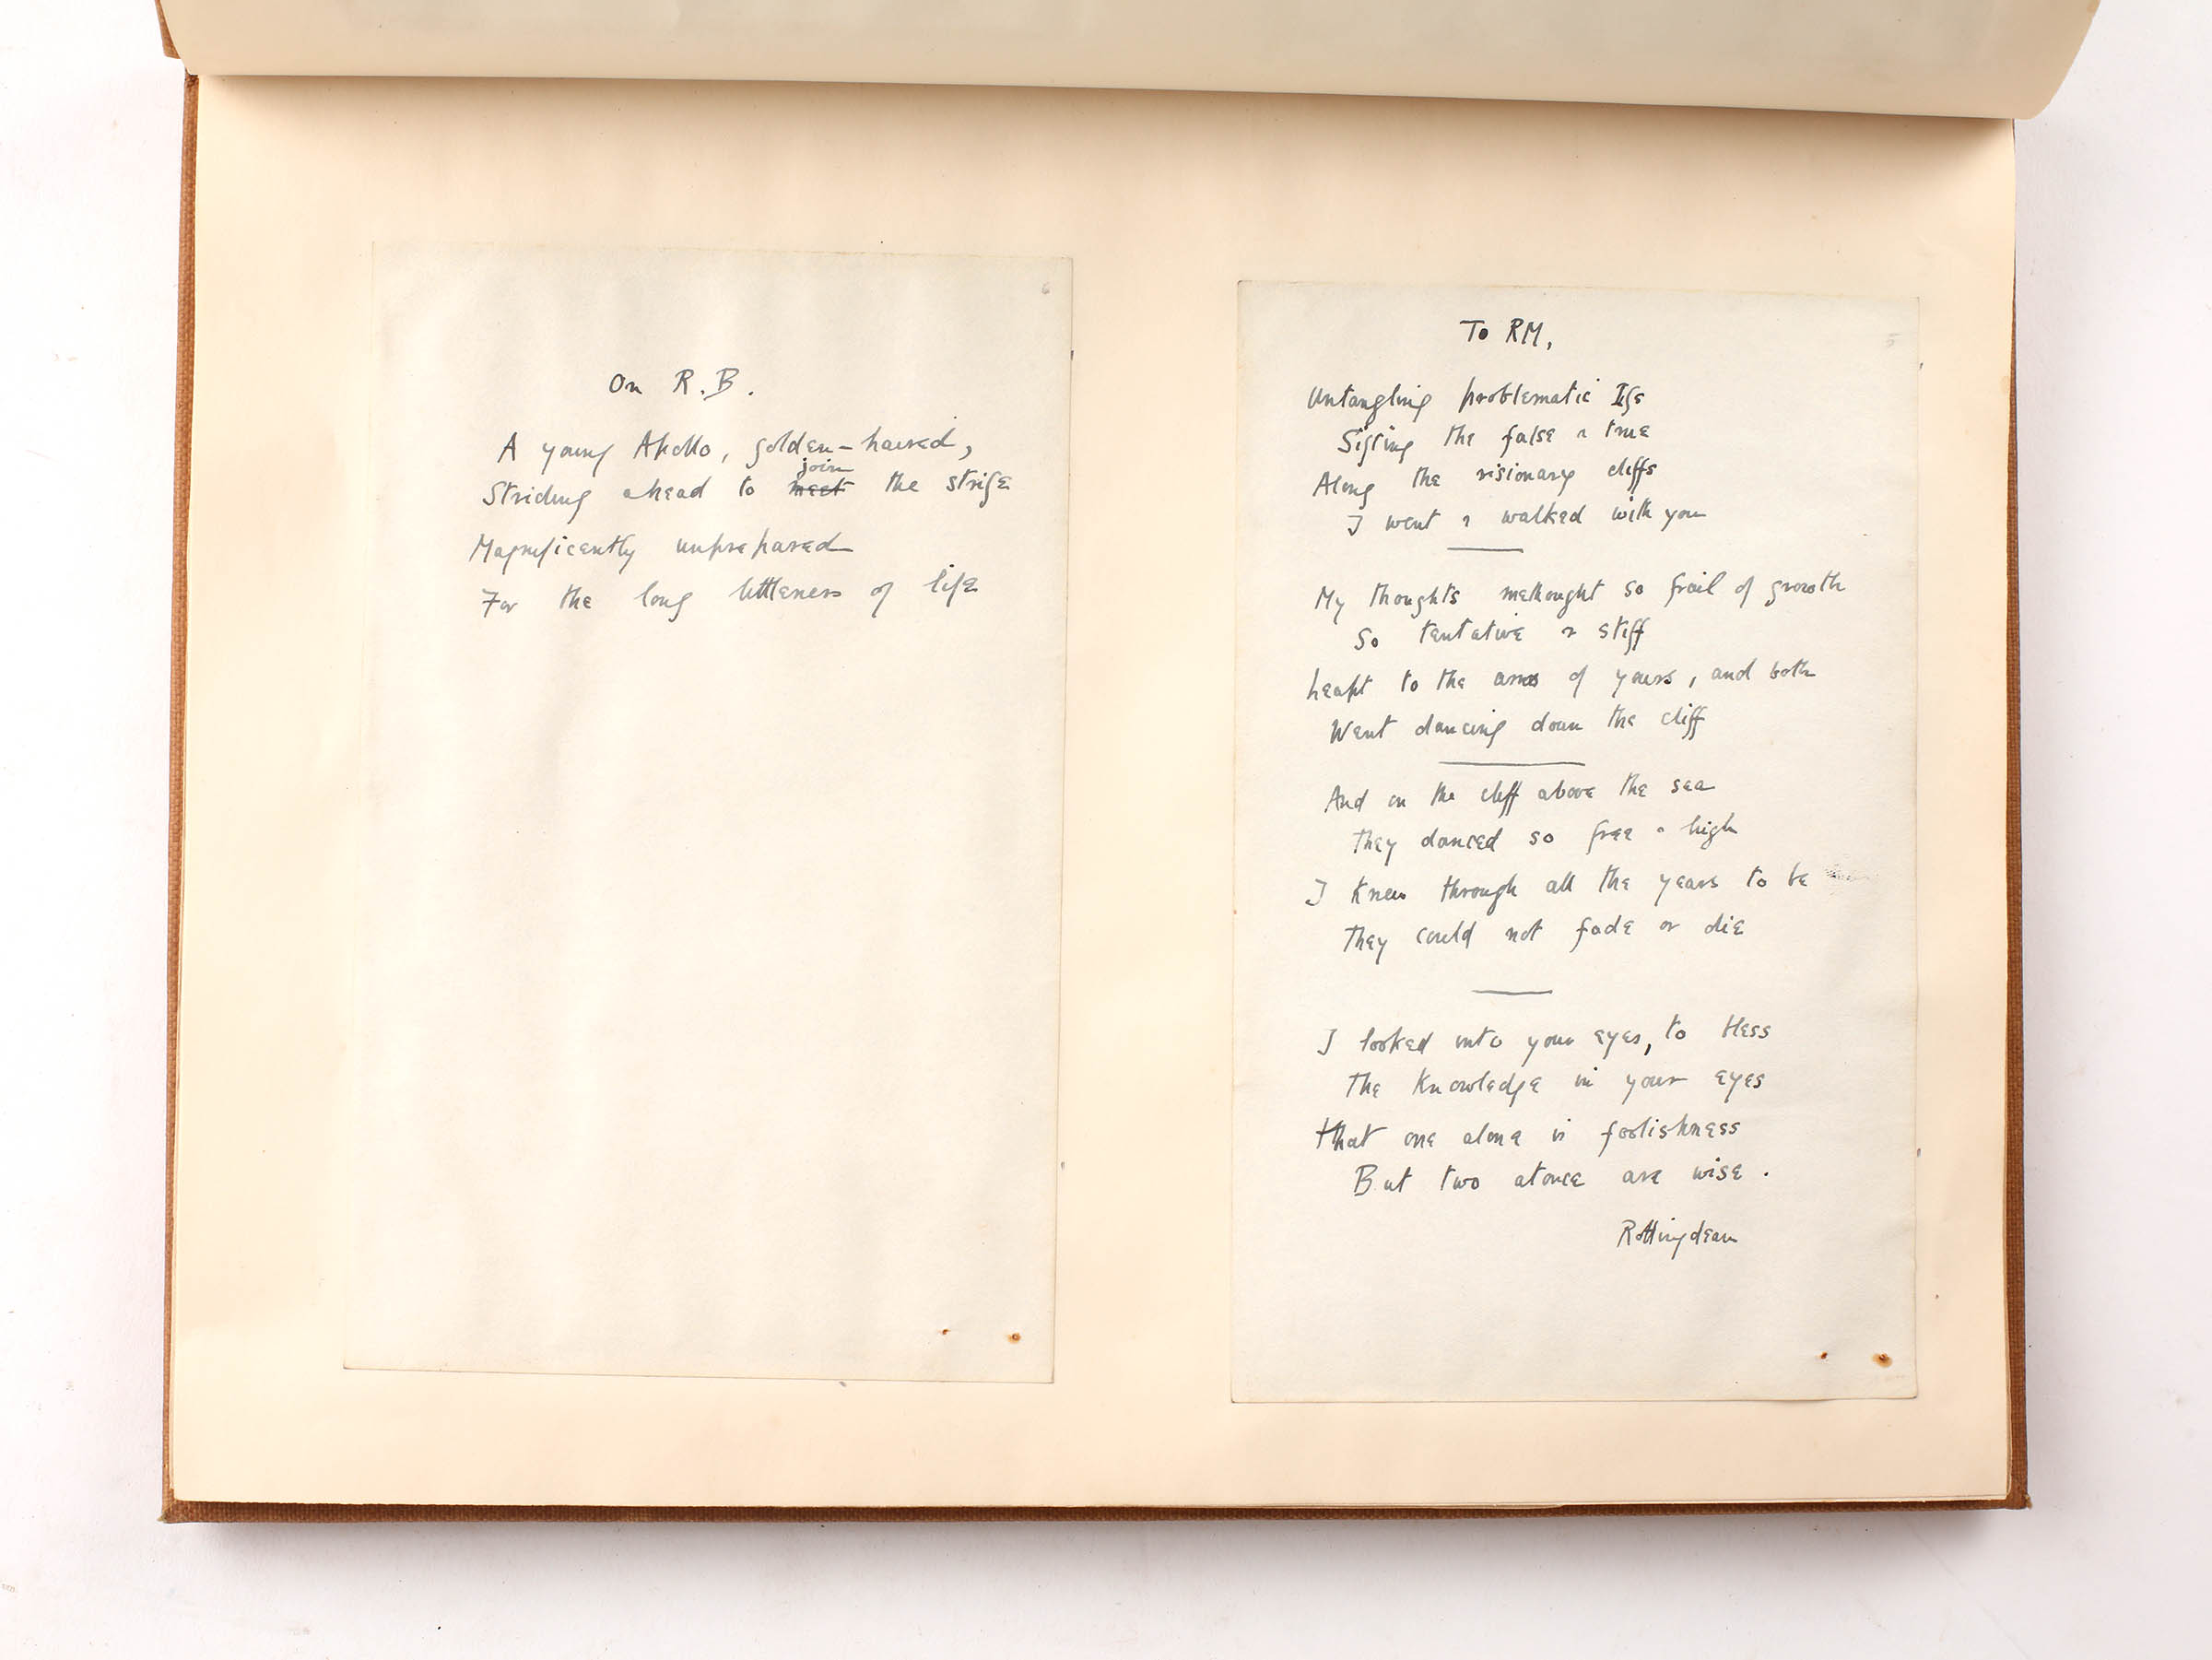 6
On R.B.
A young Apollo, golden-haired,
join
Striding ahead to meet the strife
Magnificently unprepared
For the long littleness of life
5
To RM,
Untangling problematic Ifs
Sifting the false & true
Along the visionary cliffs
I went & walked with you
My thoughts methought so frail of growth
So tentative & stiff
Leapt to the arms of yours, and both
Went dancing down the cliff
And on the cliff above the sea
They danced so free & high
I knew through all the years to be
They could not fade or die
I looked into your eyes, to bless
The knowledge in your eyes
That one alone is foolishness
But two atonce are wise.
Rottingdean